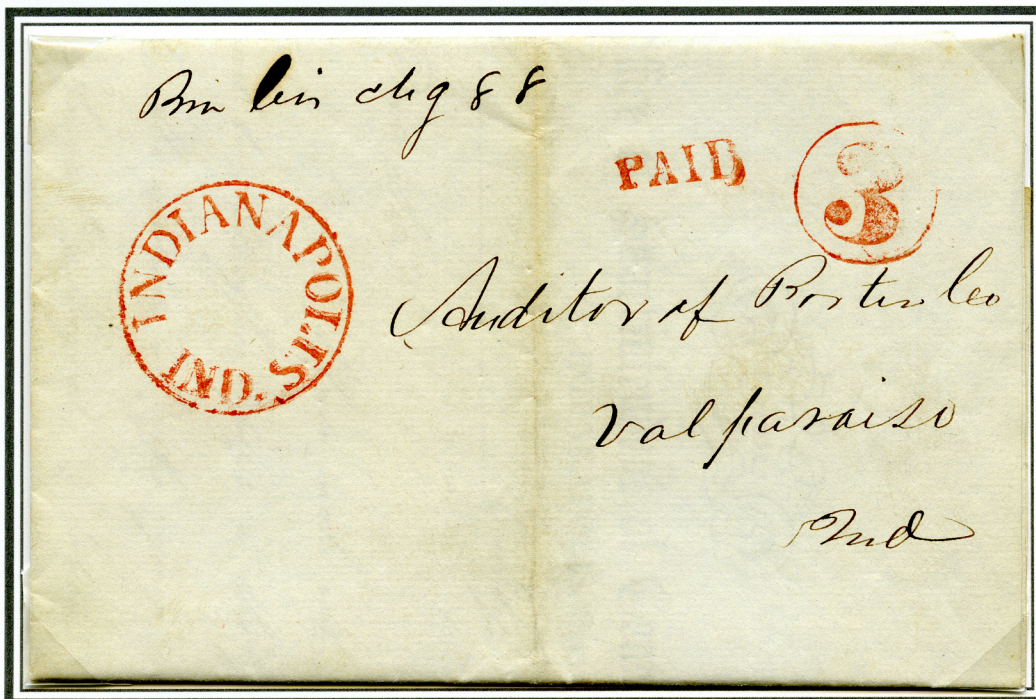 chg 88
PAID 3
INDIANAPOLIS
IND.
Auditor of Porter Co
Valparaiso
Ind